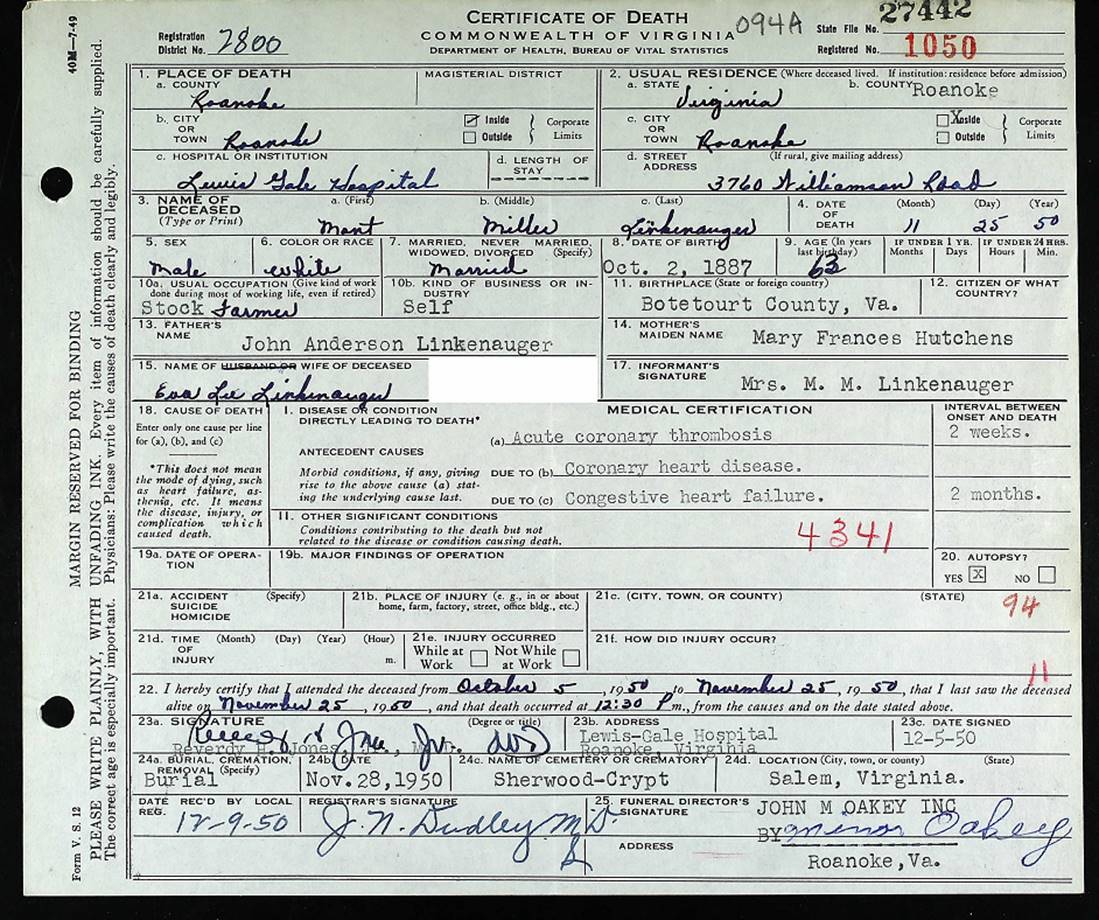 CERTIFICATE OF DEATH
COMMONWEALTH OF VIRGINIA
DEPARTMENT OF HEALTH, BUREAU OF VITAL STATISTICS
Registration District No. 2800
094A
State File No. 27442
Registered No. 1050
40M—7-49
MARGIN RESERVED FOR BINDING
PLEASE WRITE PLAINLY, WITH UNFADING INK. Every item of information should be carefully supplied.
The correct age is especially important. Physicians: Please write the causes of death clearly and legibly.
Form V. S. 12
1. PLACE OF DEATH
a. COUNTY Roanoke
MAGISTERIAL DISTRICT
2. USUAL RESIDENCE (Where deceased lived. If institution: residence before admission)
a. STATE Virginia
b. COUNTY Roanoke
b. CITY OR TOWN Roanoke
Inside Outside } Corporate Limits
c. CITY OR TOWN Roanoke
X Inside Outside } Corporate Limits
c. HOSPITAL OR INSTITUTION
Lewis Gale Hospital
d. LENGTH OF STAY
d. STREET ADDRESS (If rural, give mailing address)
3760 Williamson Road
3. NAME OF DECEASED (Type or Print)
a. (First) Mont
b. (Middle) Miller
c. (Last) Linkenauger
4. DATE OF DEATH (Month) (Day) (Year)
11 25 50
5. SEX
Male
6. COLOR OR RACE
White
7. MARRIED, NEVER MARRIED, WIDOWED, DIVORCED (Specify)
Married
8. DATE OF BIRTH
Oct. 2, 1887
9. AGE (In years last birthday)
63
IF UNDER 1 YR. Months Days
IF UNDER 24 HRS. Hours Min.
10a. USUAL OCCUPATION (Give kind of work done during most of working life, even if retired)
Stock Farmer
10b. KIND OF BUSINESS OR INDUSTRY
Self
11. BIRTHPLACE (State or foreign country)
Botetourt County, Va.
12. CITIZEN OF WHAT COUNTRY?
13. FATHER'S NAME
John Anderson Linkenauger
14. MOTHER'S MAIDEN NAME
Mary Frances Hutchens
15. NAME OF HUSBAND OR WIFE OF DECEASED
Eva Lee Linkenauger
17. INFORMANT'S SIGNATURE
Mrs. M. M. Linkenauger
18. CAUSE OF DEATH
Enter only one cause per line for (a), (b), and (c)
*This does not mean the mode of dying, such as heart failure, asthenia, etc. It means the disease, injury, or complication which caused death.
MEDICAL CERTIFICATION
INTERVAL BETWEEN ONSET AND DEATH
I. DISEASE OR CONDITION DIRECTLY LEADING TO DEATH*
(a) Acute coronary thrombosis
2 weeks.
ANTECEDENT CAUSES
Morbid conditions, if any, giving rise to the above cause (a) stating the underlying cause last.
DUE TO (b) Coronary heart disease.
DUE TO (c) Congestive heart failure.
2 months.
II. OTHER SIGNIFICANT CONDITIONS
Conditions contributing to the death but not related to the disease or condition causing death.
4341
19a. DATE OF OPERATION
19b. MAJOR FINDINGS OF OPERATION
20. AUTOPSY?
YES X NO
21a. ACCIDENT SUICIDE HOMICIDE (Specify)
21b. PLACE OF INJURY (e. g., in or about home, farm, factory, street, office bldg., etc.)
21c. (CITY, TOWN, OR COUNTY) (STATE)
94
21d. TIME OF INJURY (Month) (Day) (Year) (Hour) m.
21e. INJURY OCCURRED
While at Work Not While at Work
21f. HOW DID INJURY OCCUR?
11
22. I hereby certify that I attended the deceased from October 5, 1950 to November 25, 1950, that I last saw the deceased
alive on November 25, 1950, and that death occurred at 12:30 P.m., from the causes and on the date stated above.
23a. SIGNATURE (Degree or title)
Reverdy H. Jones, Jr., M. D.
23b. ADDRESS
Lewis-Gale Hospital
Roanoke, Virginia
23c. DATE SIGNED
12-5-50
24a. BURIAL, CREMATION, REMOVAL (Specify)
Burial
24b. DATE
Nov.28,1950
24c. NAME OF CEMETERY OR CREMATORY
Sherwood-Crypt
24d. LOCATION (City, town, or county) (State)
Salem, Virginia.
DATE REC'D BY LOCAL REG.
12-9-50
REGISTRAR'S SIGNATURE
J. N. Dudley M D.
25. FUNERAL DIRECTOR'S SIGNATURE
JOHN M OAKEY INC
BY Minor Oakey
ADDRESS
Roanoke, Va.